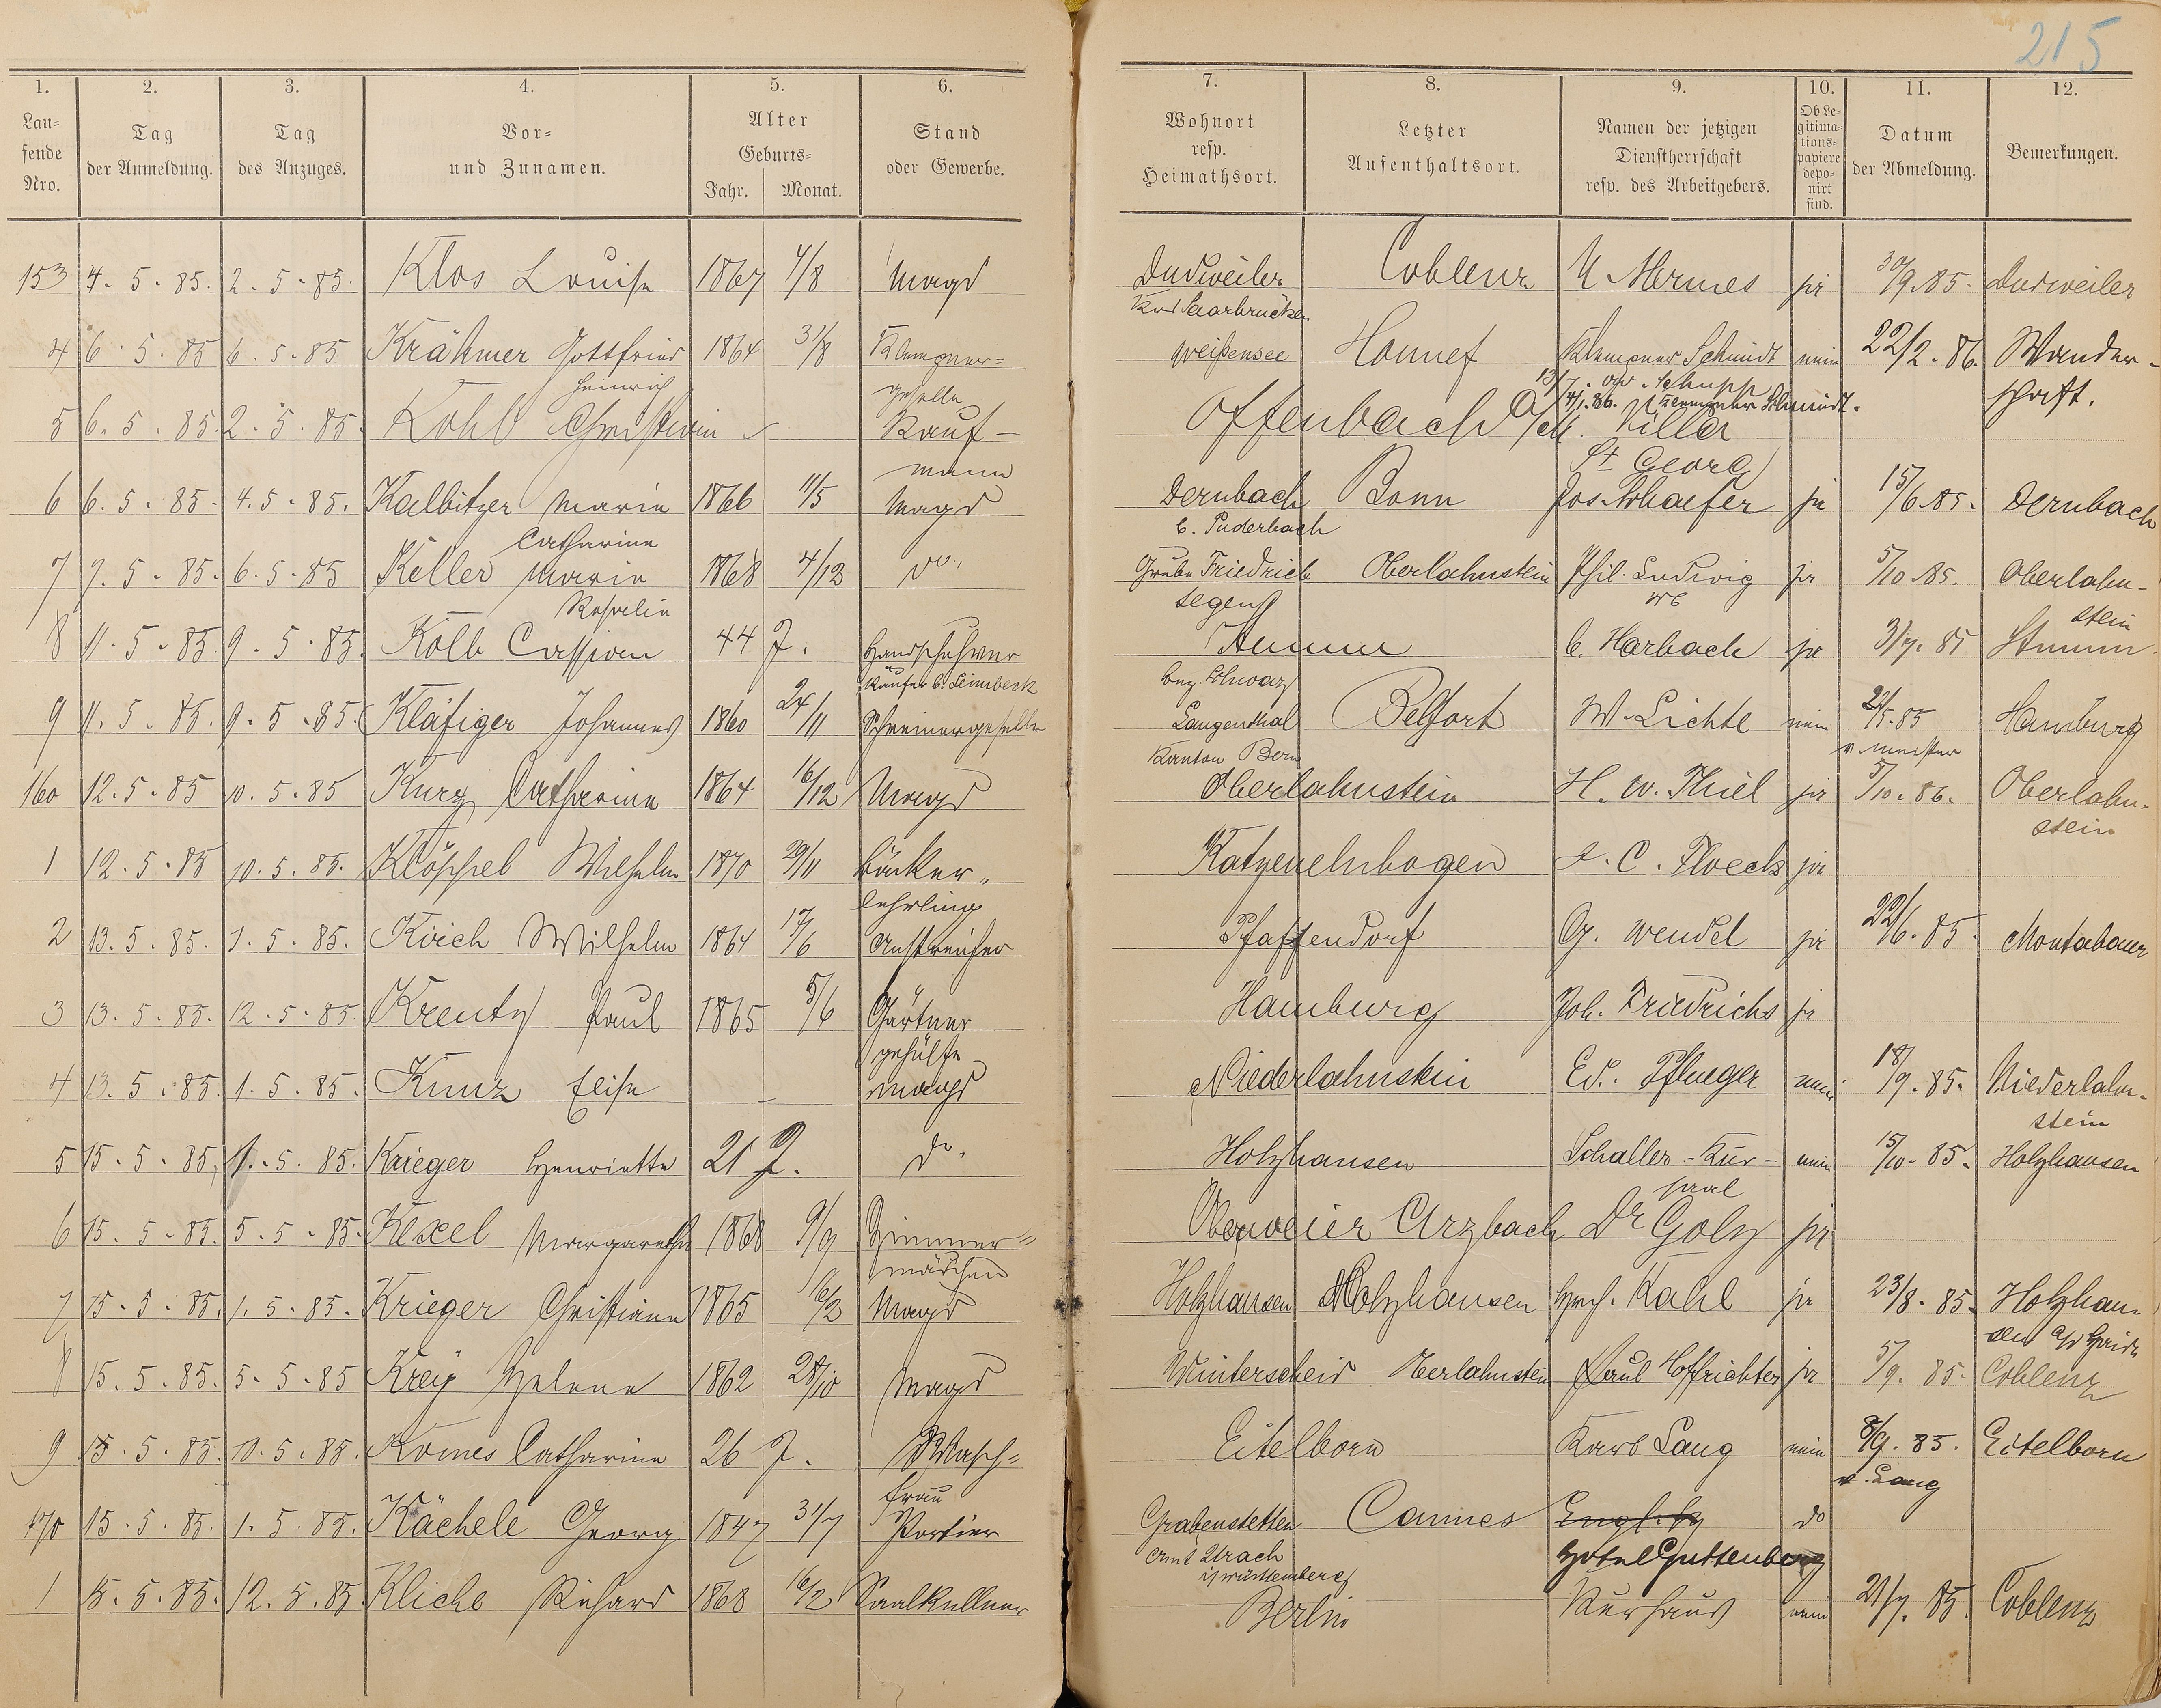 215
1. 2. 3. 4. 5. 6. 7. 8. 9. 10. 11. 12.
Lau=fende Nro. Tag der Anmeldung. Tag des Anzuges. Vor= und Zunamen. Alter Geburts= Jahr. Monat. Stand oder Gewerbe. Wohnort resp. Heimathsort. Letzter Aufenthaltsort. Namen der jetzigen Dienstherrschaft resp. des Arbeitgebers. Ob Le=gitima=tions=papiere depo=nirt sind. Datum der Abmeldung. Bemerkungen.
153 4. 5. 85. 2. 5. 85. Klos Louise 1867 4/8 Magd Dudweiler Coblenz Mermes ja 30/9. 85. Dudweiler
Saarbrücken
4 6. 5. 85 6. 5. 85 Krähmer Gottfried 1864 31/8 Klempner= Weißensee Honnef Klempner Schmidt nein 22/2. 86. Wander-
Heinrich geselle schaft.
5 6. 5. 85. 2. 5. 85. Kohl Christian Kauf- Offenbach a/M. Villa
mann St Georg
6 6. 5. 85. 4. 5. 85. Kalbitzer Marie 1866 11/5 Magd Dernbach Bonn Jos. Schaefer ja 15/6. 85. Dernbach
Catharine b. Puderbach
7 7. 5. 85. 6. 5. 85 Keller Marie 1868 4/12 do. Grube Friedrich Oberlahnstein Phil. Ludwig ja 5/10. 85. Oberlahn-
Rosalie Segen stein
8 11. 5. 85. 9. 5. 85. Kolb Cassian 44 J. Handschuhver b. Harbach ja 3/7. 85
käufer b. Leimbeck bez. Schwaz
9 11. 5. 85. 9. 5. 85. Kläfiger Johannes 1860 24/11 Schreinergeselle Langenthal Belfort W. Lichte nein 21/5. 85 Hamburg
Kanton Bern v. Meister
160 12. 5. 85 10. 5. 85 Kurz Catharine 1864 16/12 Magd Oberlahnstein H. W. Thiel ja 5/10. 86. Oberlahn-
stein
1 12. 5. 85 10. 5. 85. Klöppel Wilhelm 1870 29/11 Bäcker- Katzenelnbogen C. Floeck ja
lehrling
2 13. 5. 85. 1. 5. 85. Koch Wilhelm 1864 17/6 Anstreicher Pfaffendorf G. Wendel ja 22/6. 85. Montabaur
3 13. 5. 85. 12. 5. 85. Krentz Paul 1865 5/6 Gärtner Hamburg Joh. Friedrichs ja
gehülfe
4 13. 5. 85. 1. 5. 85. Kunz Elise - Magd Niederlahnstein Ed. Pflueger nein 18/9. 85. Niederlahn-
stein
5 15. 5. 85. 1. 5. 85. Krieger Henriette 21 J. do. Holzhausen Schaller-Kur- nein 15/10. 85. Holzhausen
saal
6 15. 5. 85. 5. 5. 85. Kexel Margarethe 1868 9/9 Zimmer= Arzbach Dr Goltz ja
mädchen
7 15. 5. 85. 1. 5. 85. Krieger Christiane 1865 16/2 Magd Holzhausen Holzhausen Hrch. Kahl ja 23/8. 85. Holzhau-
sen a/d Haide
8 15. 5. 85. 5. 5. 85 Krey Helene 1862 28/10 Magd Winterscheid Oberlahnstein Paul Hoffrichter ja 5/9. 85. Coblenz
9 15. 5. 85. 10. 5. 85. Komes Catharine 26 J. Wasch= Eitelborn Karl Lang nein 8/9. 85. Eitelborn
frau v. Lang
170 15. 5. 85. 1. 5. 85. Kächele Georg 1847 31/7 Portier Grabenstetten Cannes do
Amt Urach Hotel Guttenberg
i/ Württemberg
1 15. 5. 85. 12. 5. 85. Kliche Richard 1868 16/2 Saalkellner Berlin Kurhaus nein 21/7. 85. Coblenz